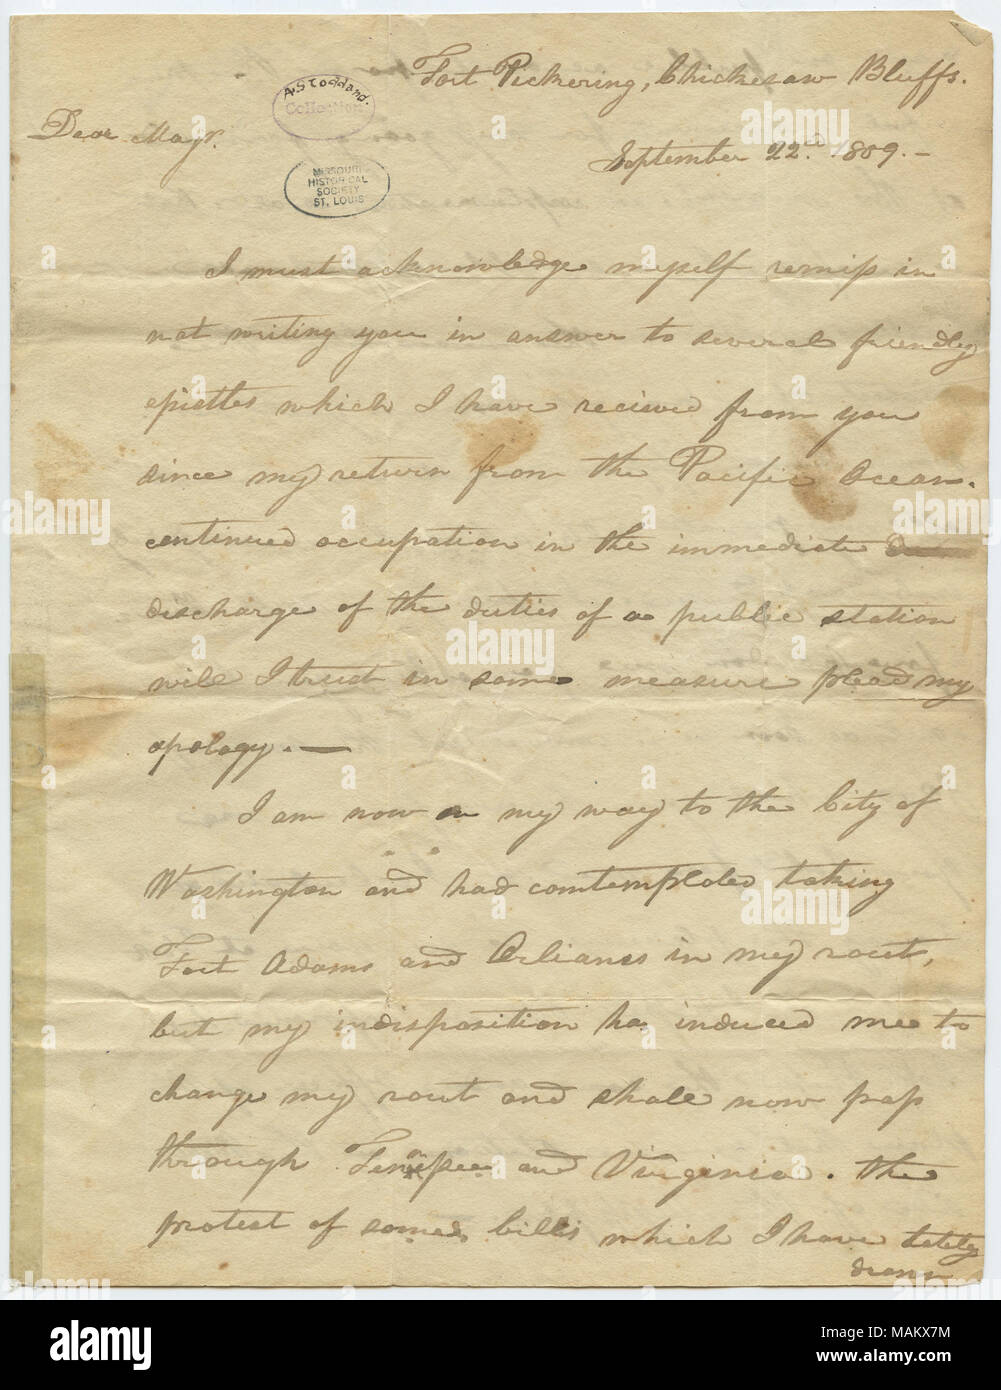 Fort Pickering, Chickesaw Bluffs.
A. Stoddard.
Collection
Dear Majr.
September 22nd. 1809.–
MISSOURI
HISTORICAL
SOCIETY
ST. LOUIS
I must acknowledge myself remiss in
not writing you in answer to several friendly
epistles which I have recieved from you
since my return from the Pacific Ocean.
continued occupation in the immediate
discharge of the duties of a public station
will I trust in some measure plead my
apology.—
I am now on my way to the City of
Washington and had contemplated taking
Fort Adams and Orlianes in my rout,
but my indisposition has induced me to
change my rout and shall now pass
through Tennessee and Virginia. the
protest of some bills which I have lately
drawn
alamy
alamy stock photo
MAKX7M
www.alamy.com